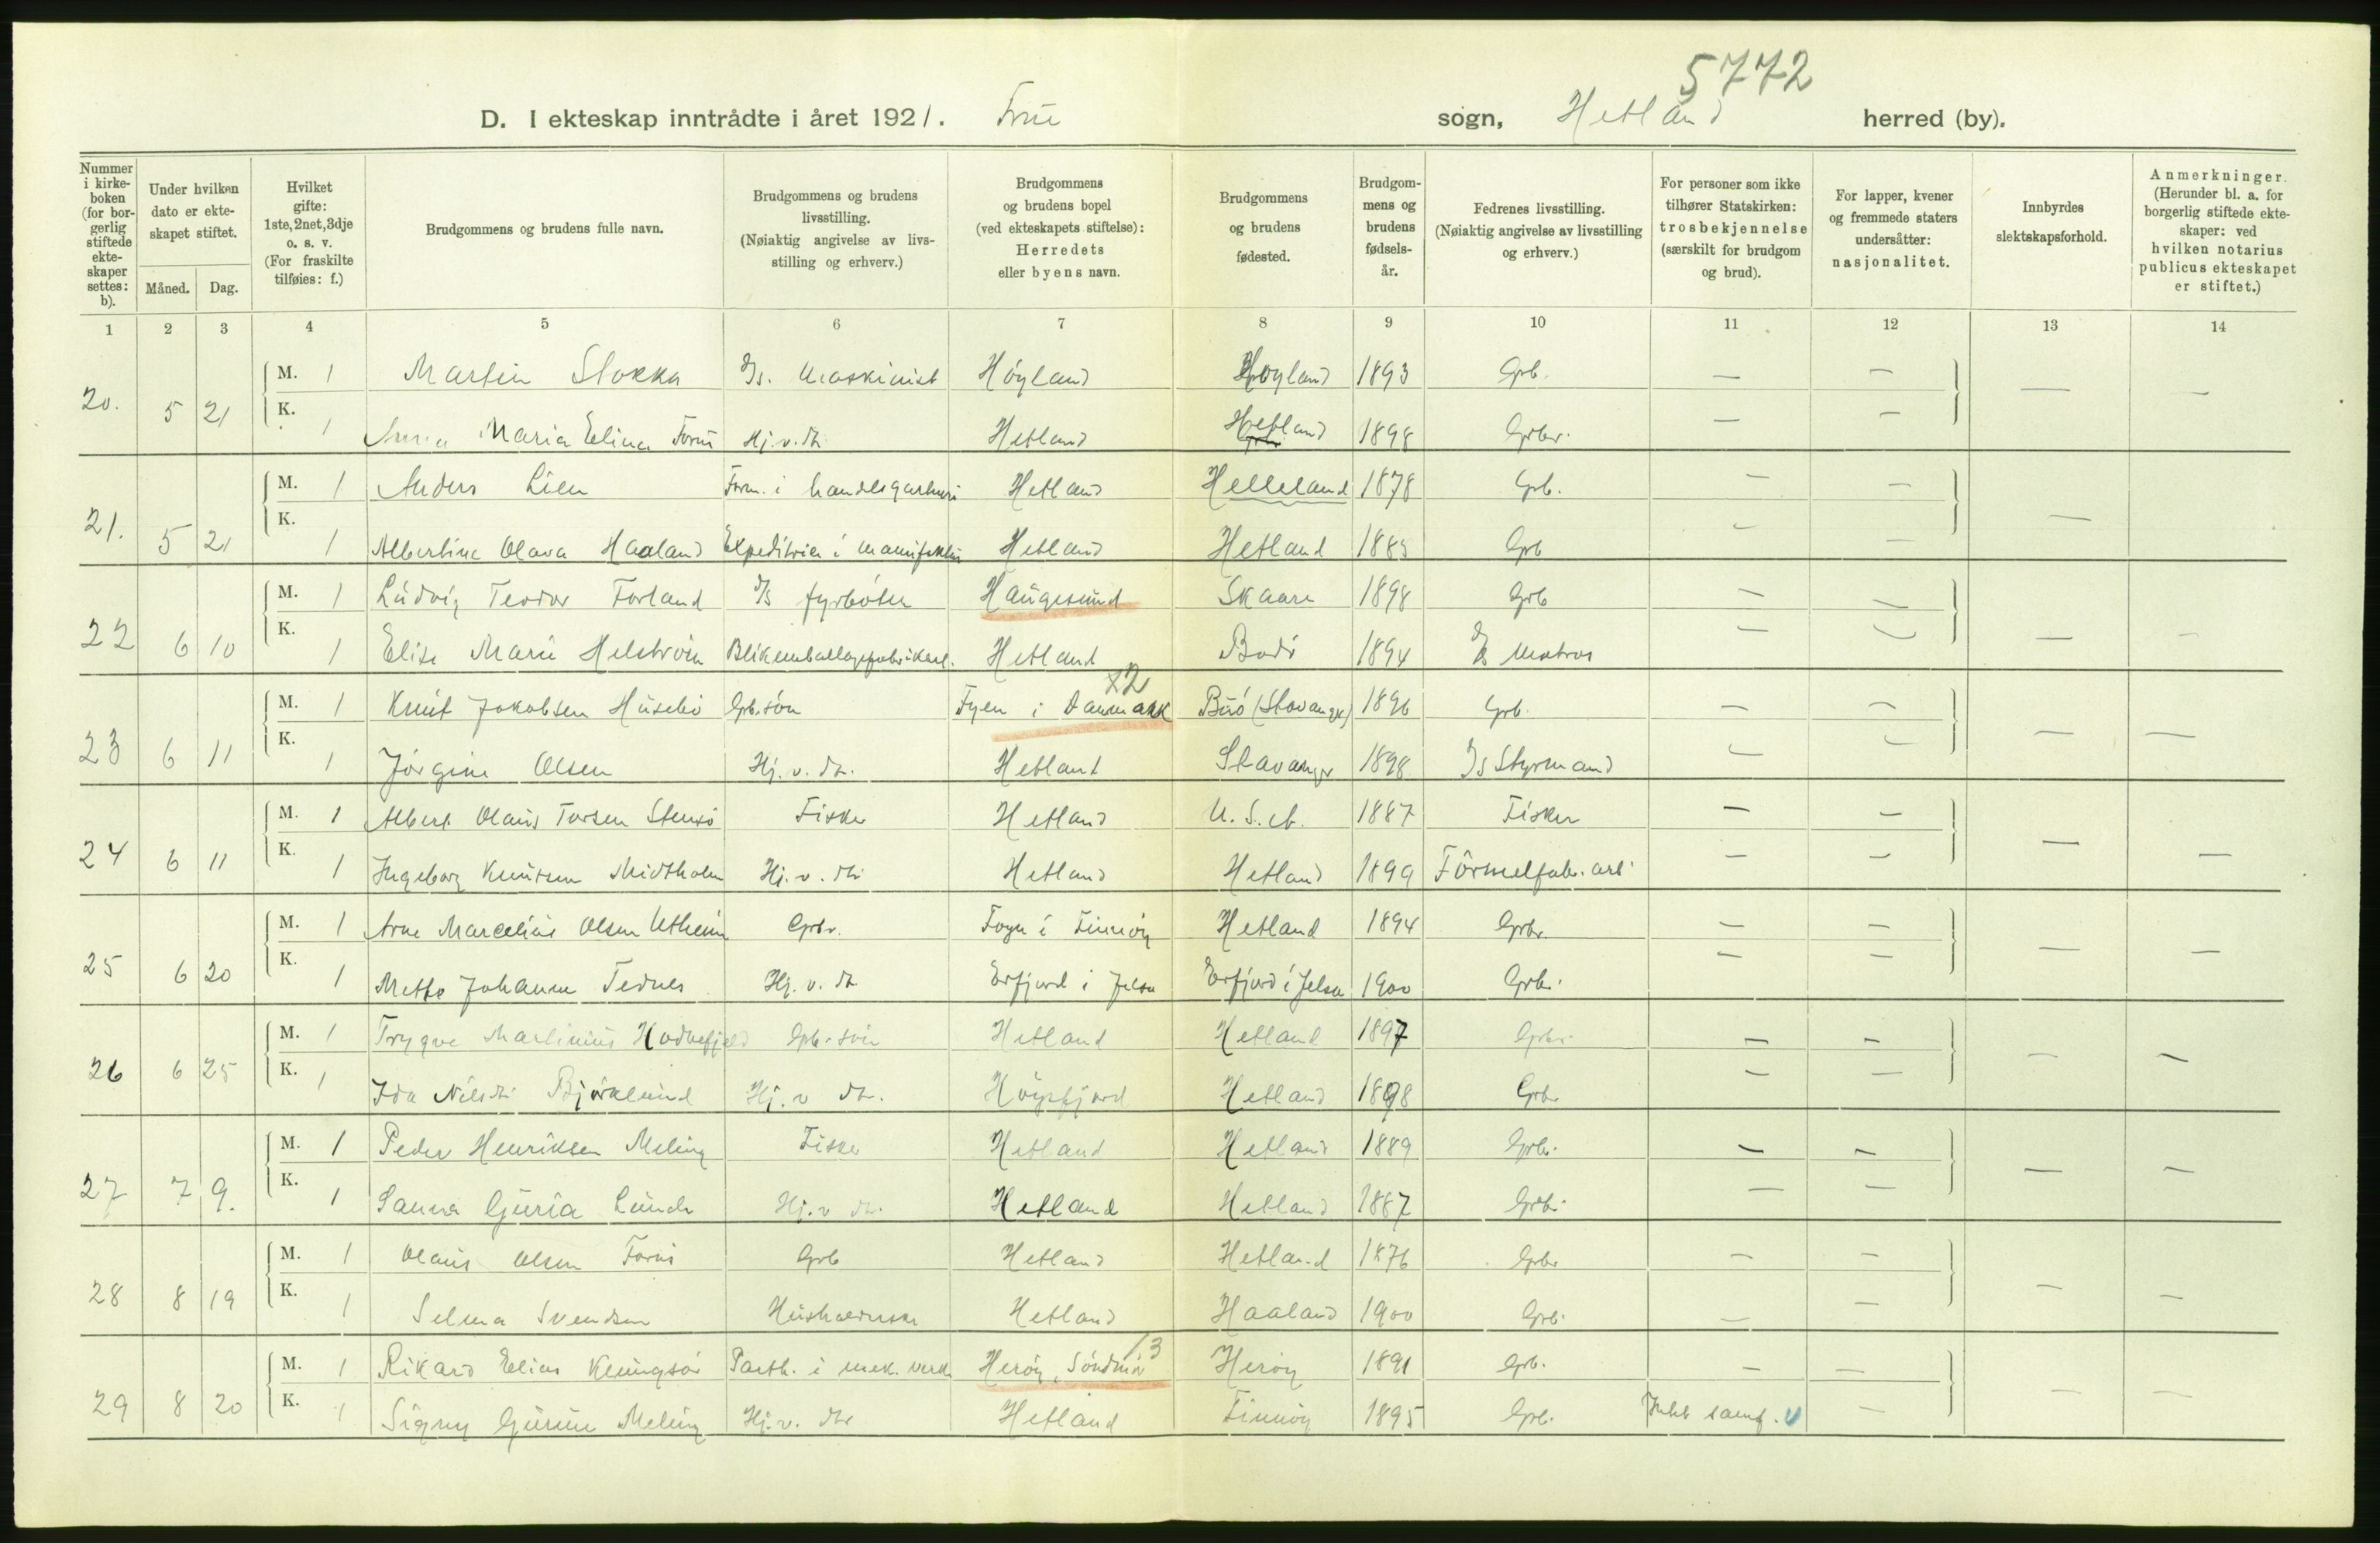 5772
D. I ekteskap inntrådte i året 1921. Frue sogn, Hetland herred (by).
Nummer i kirkeboken (for borgerlig stiftede ekteskaper settes: b).
Under hvilken dato er ekteskapet stiftet.
Måned. Dag.
Hvilket gifte: 1ste, 2net, 3dje o. s. v. (For fraskilte tilføies: f.)
Brudgommens og brudens fulle navn.
Brudgommens og brudens livsstilling. (Nøiaktig angivelse av livsstilling og erhverv.)
Brudgommens og brudens bopel (ved ekteskapets stiftelse): Herredets eller byens navn.
Brudgommens og brudens fødested.
Brudgommens og brudens fødselsår.
Fedrenes livsstilling. (Nøiaktig angivelse av livsstilling og erhverv.)
For personer som ikke tilhører Statskirken: trosbekjennelse (særskilt for brudgom og brud).
For lapper, kvener og fremmede staters undersåtter: nasjonalitet.
Innbyrdes slektskapsforhold.
Anmerkninger. (Herunder bl. a. for borgerlig stiftede ekteskaper: ved hvilken notarius publicus ekteskapet er stiftet.)
1 2 3 4 5 6 7 8 9 10 11 12 13 14
20. 5 21 M. 1 Martin Stokka D/s. Maskinist Höyland Höyland 1893 Grb. — — — —
K. 1 Anna Maria Elina Forus Hj.v.dtr. Hetland Hetland 1898 Grbr. — —
21. 5 21 M. 1 Anders Lien Form. i handelsgartneri Hetland Helleland 1878 Grb. — — —
K. 1 Albertine Olava Haaland Expeditrice i manufaktur Hetland Hetland 1885 Grb — —
22 6 10 M. 1 Ludvig Teodor Forland D/s fyrböter Haugesund Skaare 1898 Grb — — — —
K. 1 Elise Marie Helström Blikemballagefabrikarb. Hetland Bodö 1894 Matros — —
x2
23 6 11 M. 1 Knut Jakobsen Husebö Grb.sön Fyen i Danmark Buö (Stavanger) 1896 Grb. — — — —
K. 1 Jörgine Olsen Hj.v.dtr. Hetland Stavanger 1898 D/s Styrmand — —
24 6 11 M. 1 Albert Olaus Torsen Stensö Fisker Hetland U.S.A. 1887 Fisker — — — —
K. 1 Ingeborg Knutsen Midtholm Hj.v.dtr Hetland Hetland 1899 Formelfab. arb. — —
25 6 20 M. 1 Arne Marcelius Olsen Utheim Grbr. Fogn i Finnöy Hetland 1894 Grbr. — — — —
K. 1 Mette Johanne Tednes Hj.v.dtr. Erfjord i Jelsa Erfjord i Jelsa 1900 Grbr. — —
26 6 25 M. 1 Trygve Martinius Hodnefjeld Grb.sön Hetland Hetland 1897 Grbr. — — — —
K. 1 Ida Nilsdtr. Björklund Hj.v dtr. Högsfjord Hetland 1898 Grbr. — —
27 7 9. M. 1 Peder Henriksen Meling Fisker Hetland Hetland 1889 Grbr. — — — —
K. 1 Sanna Guria Lunde Hj.v dtr. Hetland Hetland 1887 Grbr. — —
28 8 19 M. 1 Olaus Olsen Forus Grb Hetland Hetland 1876 Grbr — — — —
K. 1 Selma Svendsen Husholderske Hetland Haaland 1900 Grb. — —
13
29 8 20 M. 1 Rikard Elias Klungsör Parth. i mek. verk. Heröy, Söndmör Heröy 1891 Grb. — — — —
K. 1 Signy Gurine Meling Hj.v.dtr Hetland Finnöy 1895 Grb. samf. —